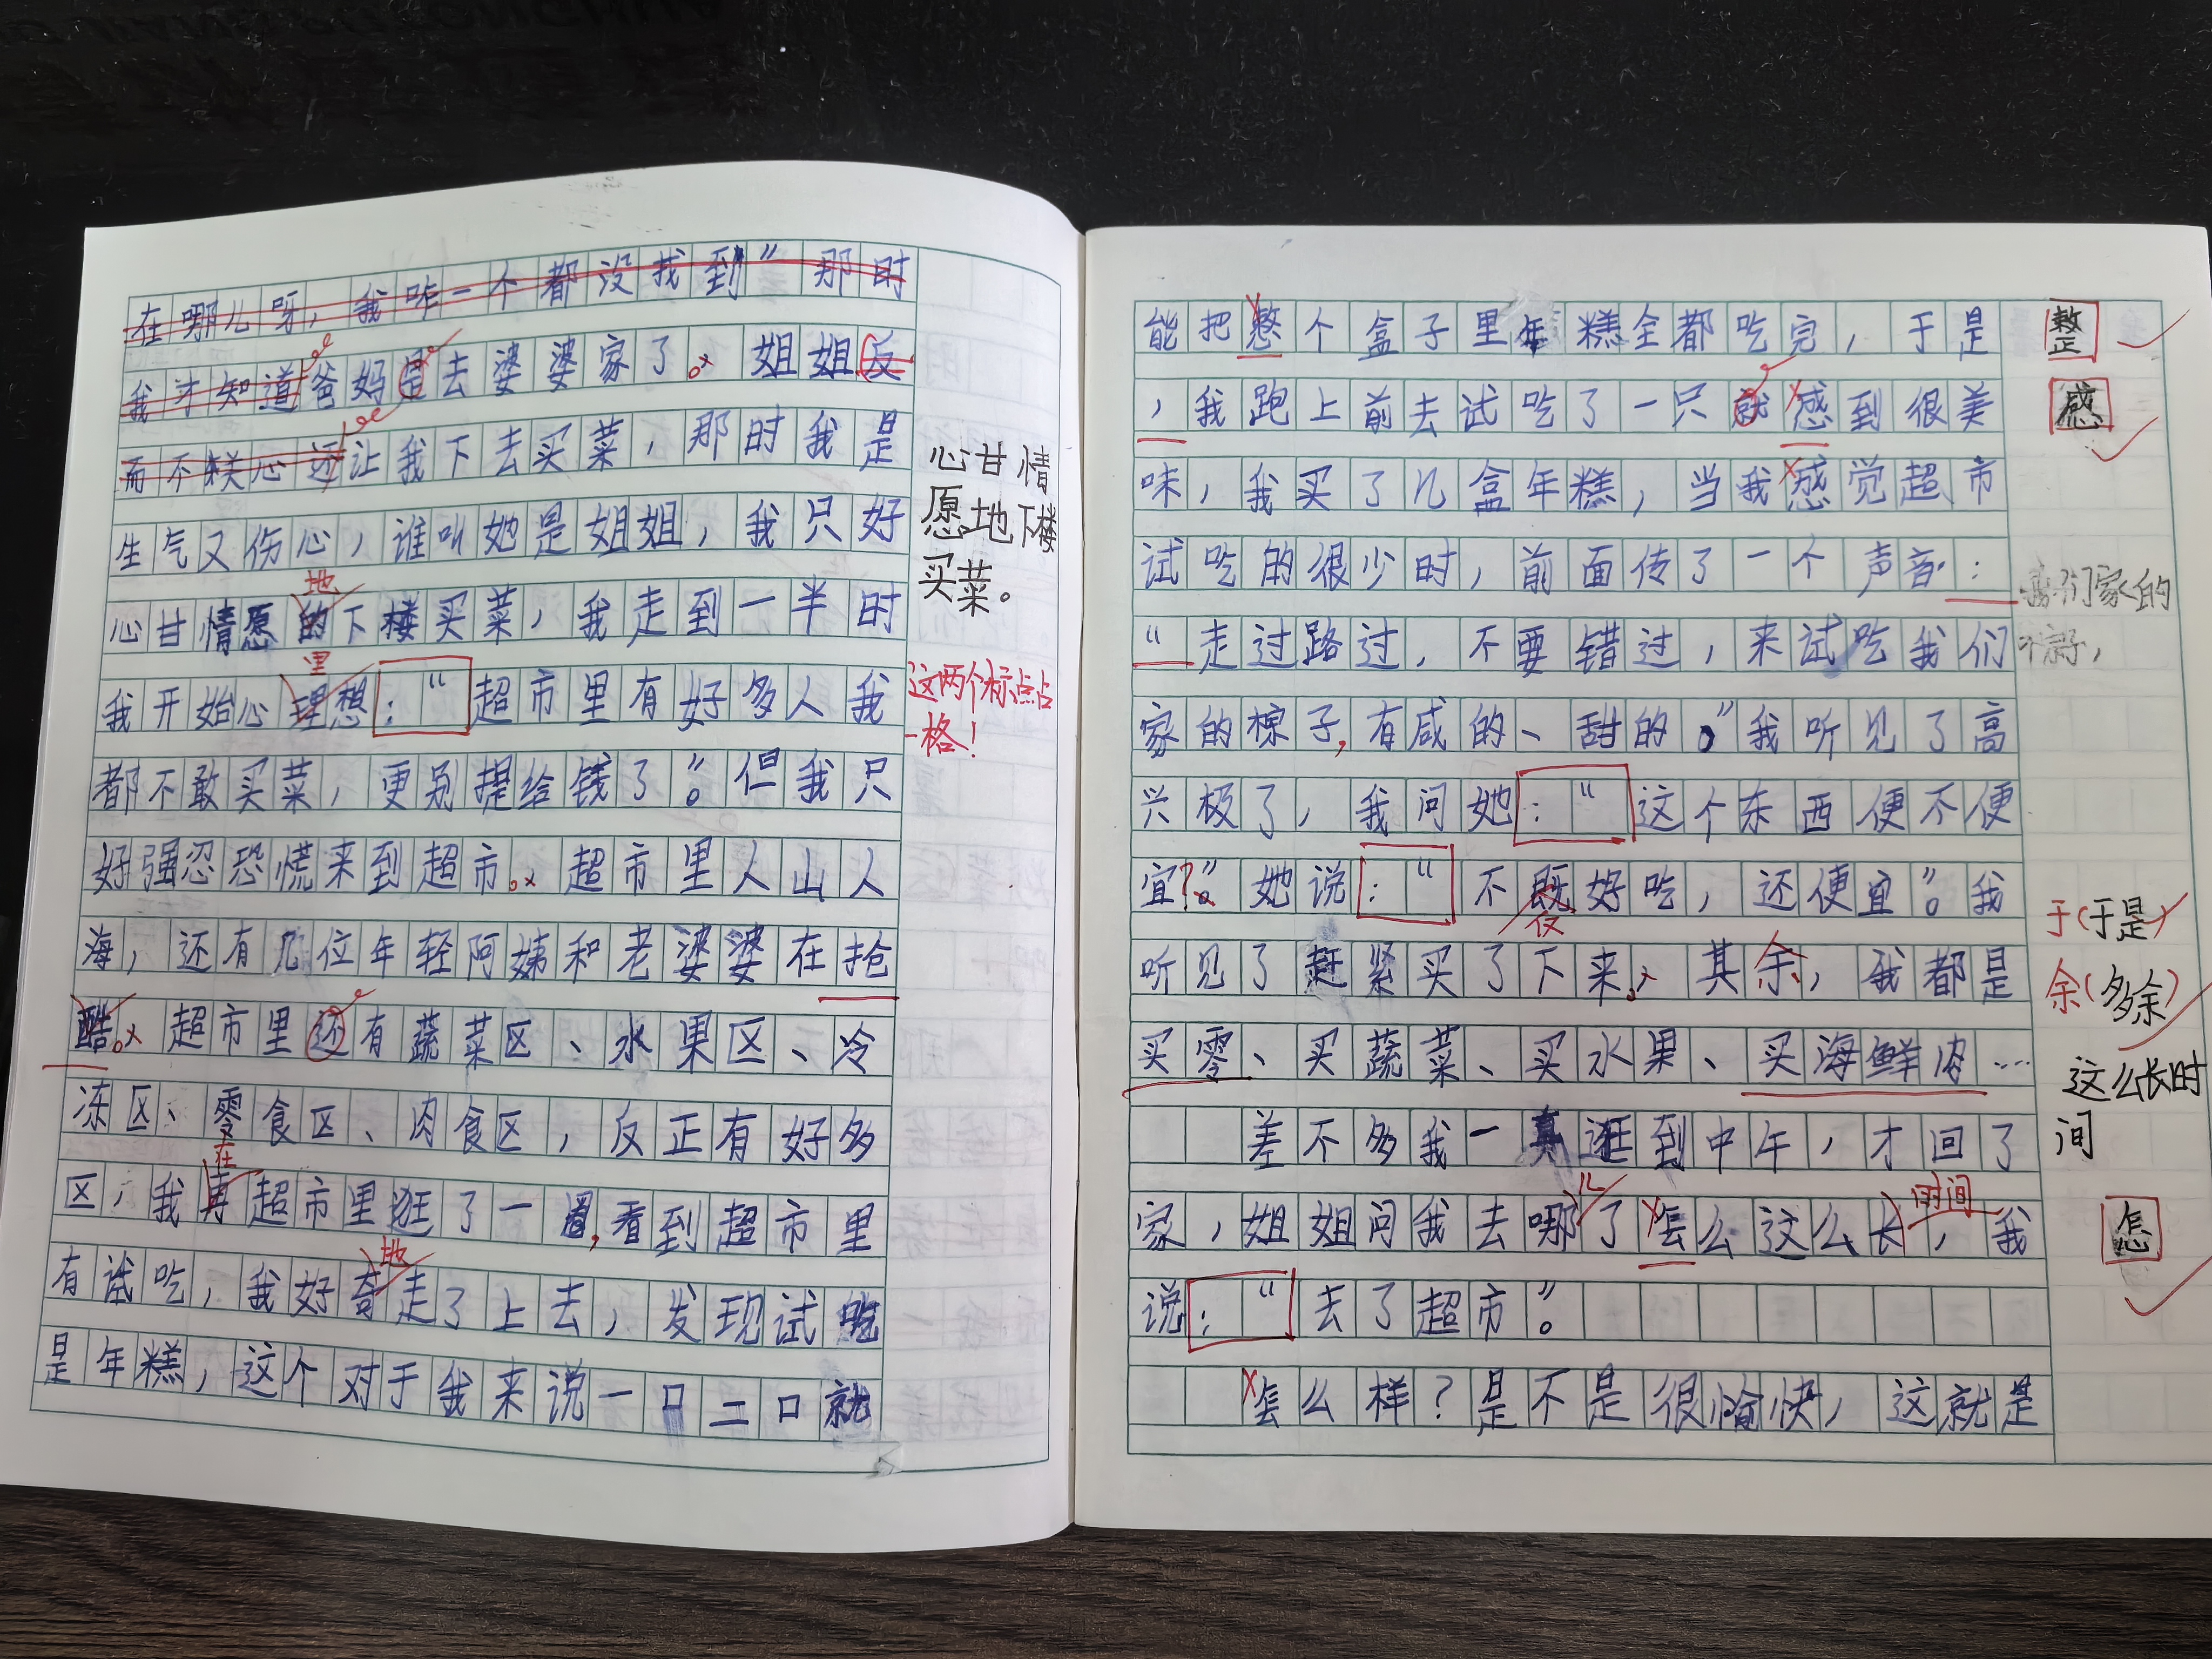 在哪儿呀，我咋一个都没找到”那时
我才知道爸妈是去婆婆家了。姐姐反
而不关心还让我下去买菜，那时我是
生气又伤心，谁叫她是姐姐，我只好
地
心甘情愿的下楼买菜，我走到一半时
里
我开始心理想：“超市里有好多人我
都不敢买菜，更别提给钱了”。但我只
好强忍恐慌来到超市。超市里人山人
海，还有几位年轻阿姨和老婆婆在抢
酷。超市里还有蔬菜区、水果区、冷
冻区、零食区、肉食区，反正有好多
在
区，我再超市里逛了一圈，看到超市里
地
有试吃，我好奇走了上去，发现试吃
是年糕，这个对于我来说一口二口就
心甘情
愿地下楼
买菜。
这两个标点占
一格！
能把整个盒子里年糕全都吃完，于是
，我跑上前去试吃了一只就感到很美
味，我买了几盒年糕，当我感觉超市
试吃的很少时，前面传了一个声音：
“走过路过，不要错过，来试吃我们
家的棕子，有咸的、甜的。”我听见了高
兴极了，我问她：“这个东西便不便
宜？”。她说：“不既好吃，还便宜”。我
仅
听见了赶紧买了下来。其余，我都是
买零、买蔬菜、买水果、买海鲜肉…
差不多我一真逛到中午，才回了
儿 时间
家，姐姐问我去哪了怎么这么长，我
说：“去了超市”。
怎么样？是不是很愉快，这就是
整
感
我们家的
于(于是)
余(多余)
这么长时
间
怎